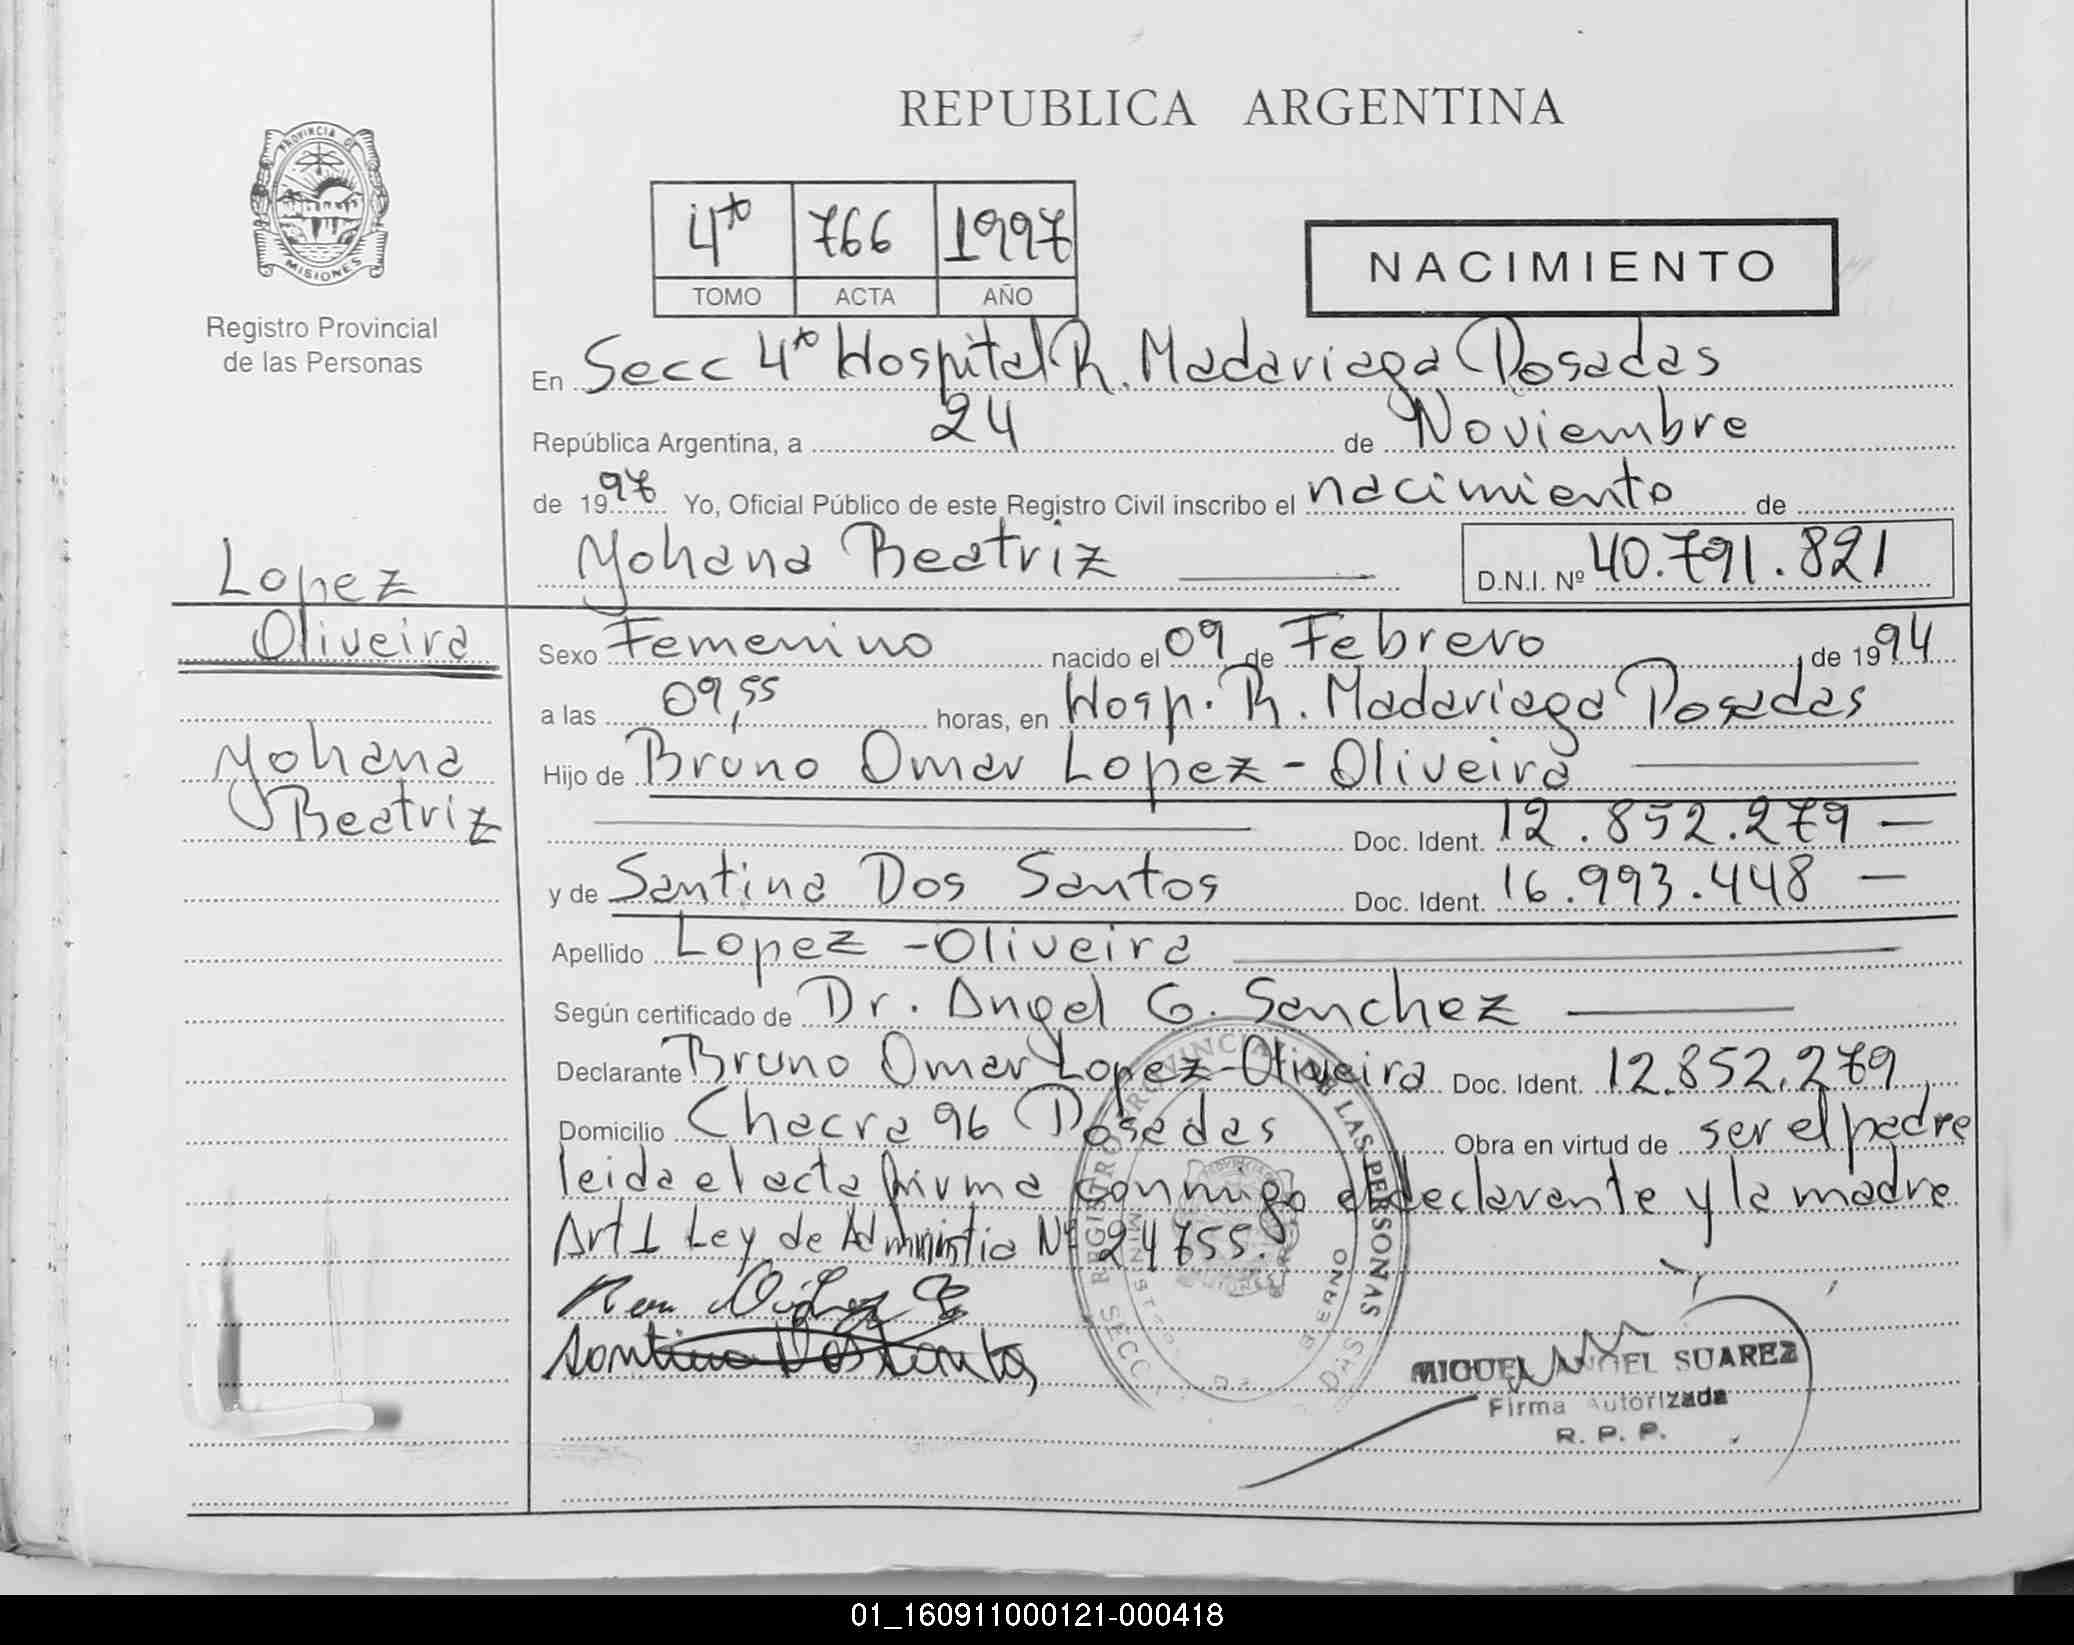 REPUBLICA ARGENTINA
PROVINCIA DE
MISIONES
Registro Provincial
de las Personas
4to 766 1997
TOMO ACTA AÑO
NACIMIENTO
En Secc 4to Hospital R. Madariaga Posadas
República Argentina, a 24 de Noviembre
de 1997 Yo, Oficial Público de este Registro Civil inscribo el nacimiento de
Yohana Beatriz D.N.I. Nº 40.791.821
Lopez
Oliveira
Yohana
Beatriz
Sexo Femenino nacido el 09 de Febrero de 1994
a las 09,55 horas, en Hosp. R. Madariaga Posadas
Hijo de Bruno Omar Lopez - Oliveira
Doc. Ident. 12.852.279 —
y de Santina Dos Santos Doc. Ident. 16.993.448 —
Apellido Lopez - Oliveira
Según certificado de Dr. Angel G. Sanchez
Declarante Bruno Omar Lopez - Oliveira Doc. Ident. 12.852.279
Domicilio Chacra 96 Posadas Obra en virtud de ser el padre
leida el acta firma conmigo el declarante y la madre
Art 1 Ley de Administia Nº 24755.
Santina Dos Santos
REGISTRO PROVINCIAL DE LAS PERSONAS
MIGUEL ANGEL SUAREZ
Firma Autorizada
R. P. P.
01_160911000121-000418